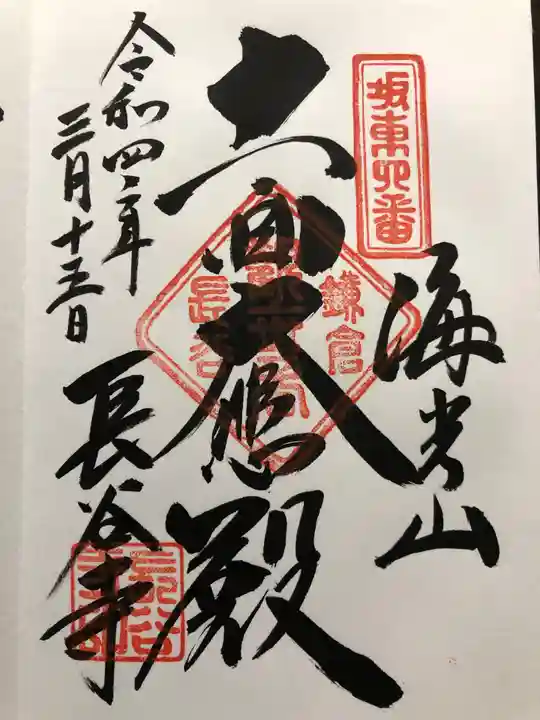 坂東四番
海光山
十一面大悲殿
鎌倉
長谷
令和四年
三月十五日
長谷寺